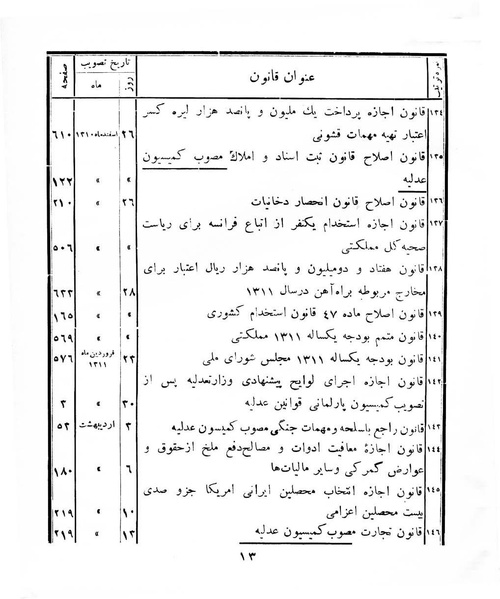 نمره ترتیب	عنوان قانون	تاریخ تصویب	صفحه
روز	ماه
۱۳۴	قانون اجازه پرداخت یك ملیون و پانصد هزار لیره کسر
اعتبار تهیه مهمات قشونی	۲۶	اسفندماه ۱۳۱۰	۶۱۰
۱۳۵	قانون اصلاح قانون ثبت اسناد و املاك مصوب کمیسیون
عدلیه	»	»	۱۲۲
۱۳۶	قانون اصلاح قانون انحصار دخانیات	۲۶	»	۲۱۰
۱۳۷	قانون اجازه استخدام یکنفر از اتباع فرانسه برای ریاست
صحیه کل مملکتی	»	»	۵۰۶
۱۳۸	قانون هفتاد و دومیلیون و پانصد هزار ریال اعتبار برای
مخارج مربوطه براه آهن درسال ۱۳۱۱	۲۸	»	۶۳۳
۱۳۹	قانون اصلاح ماده ۴۷ قانون استخدام کشوری	»	»	۱۶۵
۱۴۰	قانون متمم بودجه یکساله ۱۳۱۱ مملکتی	»	»	۵۶۹
۱۴۱	قانون بودجه یکساله ۱۳۱۱ مجلس شورای ملی	۲۳	فروردین ماه ۱۳۱۱	۵۷۶
۱۴۲	قانون اجازه اجرای لوایح پیشنهادی وزارتعدلیه پس از
تصویب کمیسیون پارلمانی قوانین عدلیه	۳۰	»	۳
۱۴۳	قانون راجع باسلحه و مهمات جنگی مصوب کمیسون عدلیه	۳	اردیبهشت	۵۳
۱۴۴	قانون اجازهٔ معافیت ادوات و مصالح دفع ملخ از حقوق و
عوارض گمرکی وسایر مالیات‌ها	۶	»	۱۸۰
۱۴۵	قانون اجازه انتخاب محصلین ایرانی امریکا جزو صدی
بیست محصلین اعزامی	۱۰	»	۲۱۹
۱۴۶	قانون تجارت مصوب کمیسیون عدلیه	۱۳	»	۲۱۹
۱۳